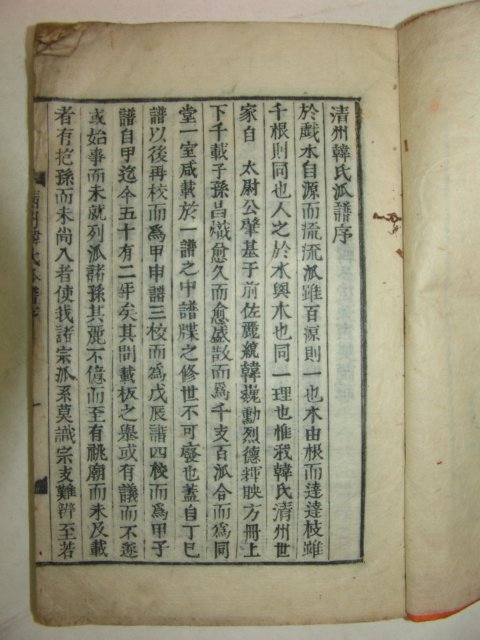 清州韓氏派譜序
於戲水自源而流流派雖百源則一也木由根而達達枝雖
千根則同也人之於水與木也同一理也惟我韓氏清州世
家自 太尉公肇基于前佐麗統韓巍勳烈德輝映方冊上
下千載子孫昌熾愈久而愈盛散而爲千支百派合而爲同
堂一室咸載於一譜之中譜牒之修世不可廢也蓋自丁巳
譜以後再校而爲甲申譜三校而爲戊辰譜四校而爲甲子
譜自甲迄今五十有二年矣其間載板之擧或有議而不遂
或始事而未就列派諸孫其麗不億而至有祧廟而未及載
者有抱孫而未尚入者使我諸宗派系莫識宗支難辨至若